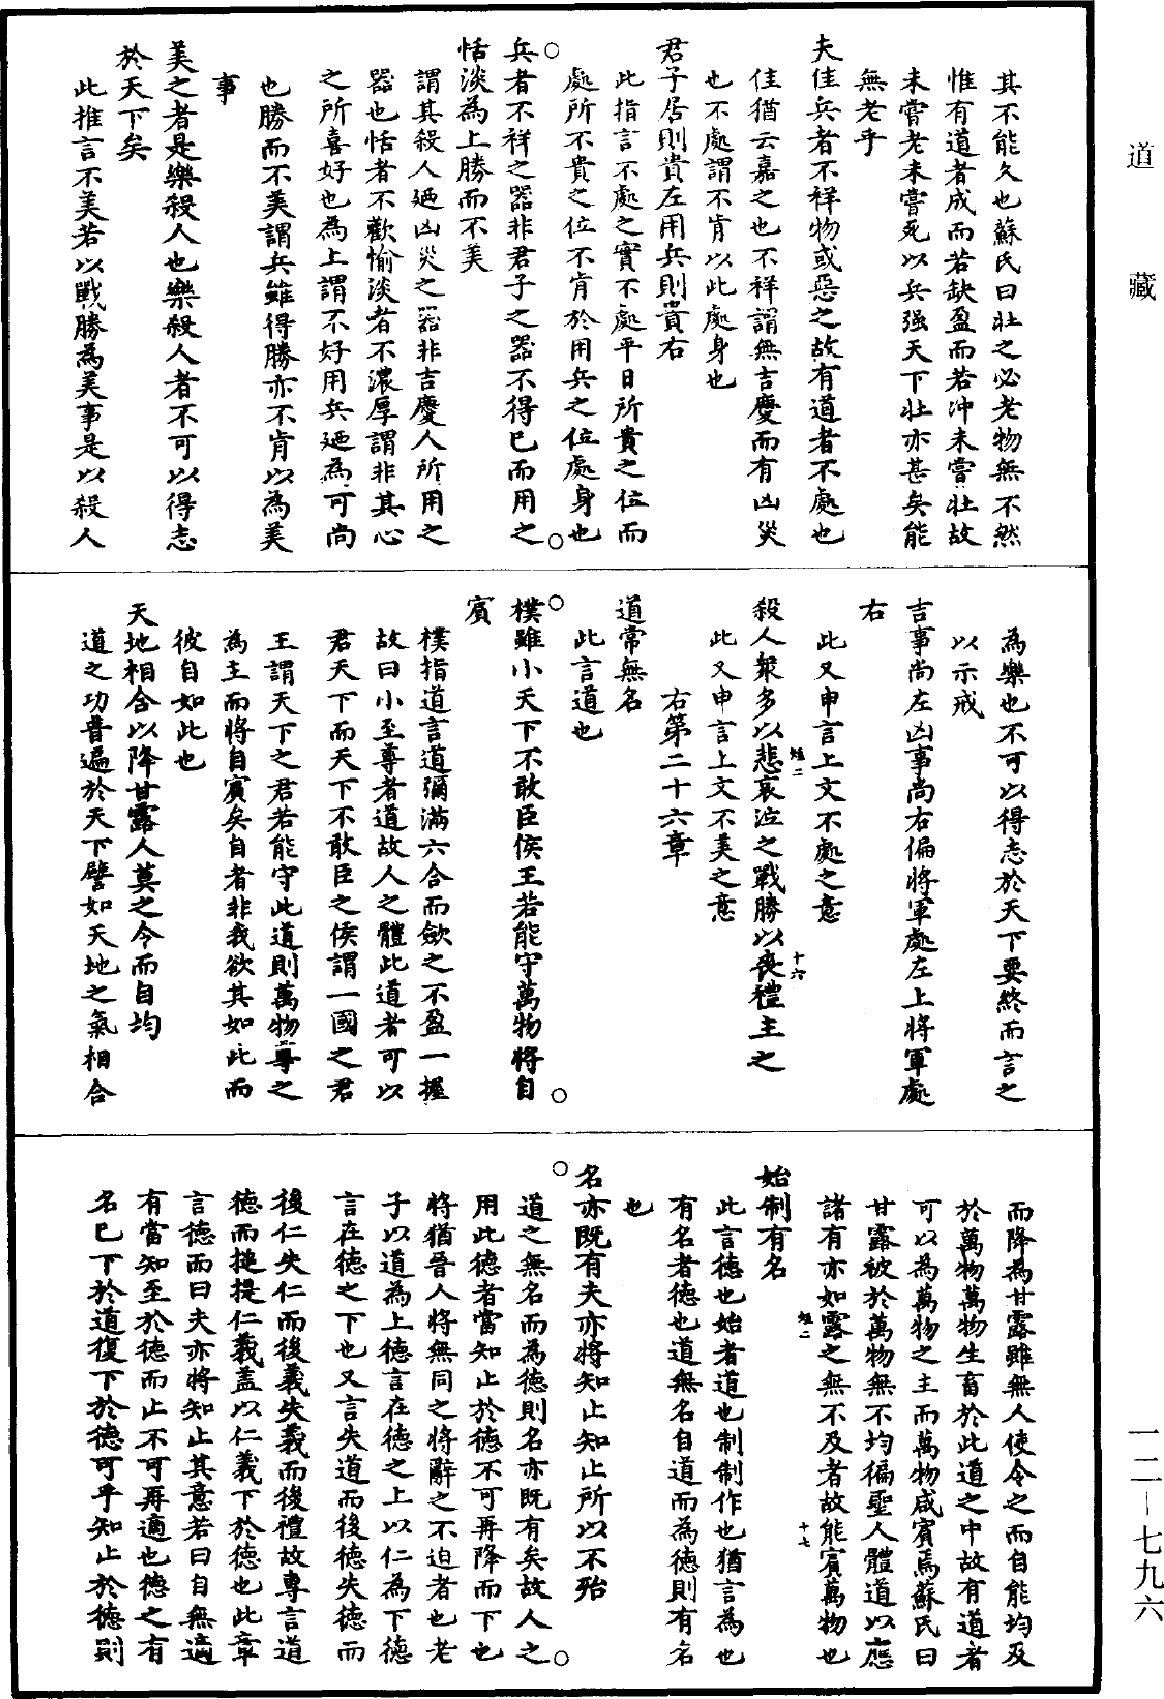 道藏
其不能久也蘇氏曰壯之必老物無不然
惟有道者成而若缺盈而若沖未嘗壯故
未嘗老未嘗死以兵强天下壯亦甚矣能
無老乎
夫佳兵者不祥物或惡之故有道者不處也
佳猶云嘉之也不祥謂無吉慶而有凶災
也不處謂不肯以此處身也
君子居則貴左用兵則貴右
此指言不處之實不處平日所貴之位而
處所不貴之位不肯於用兵之位處身也
兵者不祥之器非君子之器不得已而用之
恬淡為上勝而不美
謂其殺人廼凶災之器非吉慶人所用之
器也恬者不歡愉淡者不濃厚謂非其心
之所喜好也為上謂不好用兵廼為可尚
也勝而不美謂兵雖得勝亦不肯以為美
事
美之者是樂殺人也樂殺人者不可以得志
於天下矣
此推言不美若以戰勝為美事是以殺人
為樂也不可以得志於天下要終而言之
以示戒
吉事尚左凶事尚右偏將軍處左上將軍處
右
此又申言上文不處之意
殺人衆多以悲哀泣之戰勝以喪禮主之
短二
十六
此又申言上文不美之意
右第二十六章
道常無名
此言道也
樸雖小天下不敢臣侯王若能守萬物將自
賓
樸指道言道彌滿六合而斂之不盈一握
故曰小至尊者道故人之體此道者可以
君天下而天下不敢臣之侯謂一國之君
王謂天下之君若能守此道則萬物尊之
為主而將自賓矣自者非我欲其如此而
彼自如此也
天地相合以降甘露人莫之令而自均
道之功普遍於天下譬如天地之氣相合
而降為甘露雖無人使令之而自能均及
於萬物萬物生畜於此道之中故有道者
可以為萬物之主而萬物咸賓焉蘇氏曰
甘露被於萬物無不均徧聖人體道以應
諸有亦如露之無不及者故能賓萬物也
短二
十七
始制有名
此言德也始者道也制制作也猶言為也
有名者德也道無名自道而為德則有名
也
名亦既有夫亦將知止知止所以不殆
道之無名而為德則名亦既有矣故人之
用此德者當知止於德不可再降而下也
將猶晉人將無同之將辭之不迫者也老
子以道為上德言在德之上以仁為下德
言在德之下也又言失道而後德失德而
後仁失仁而後義失義而後禮故專言道
德而搥提仁義盖以仁義下於德也此章
言德而曰夫亦將知止其意若曰自無適
有當知至於德而止不可再適也德之有
名已下於道復下於德可乎知止於德則
一二—七九六